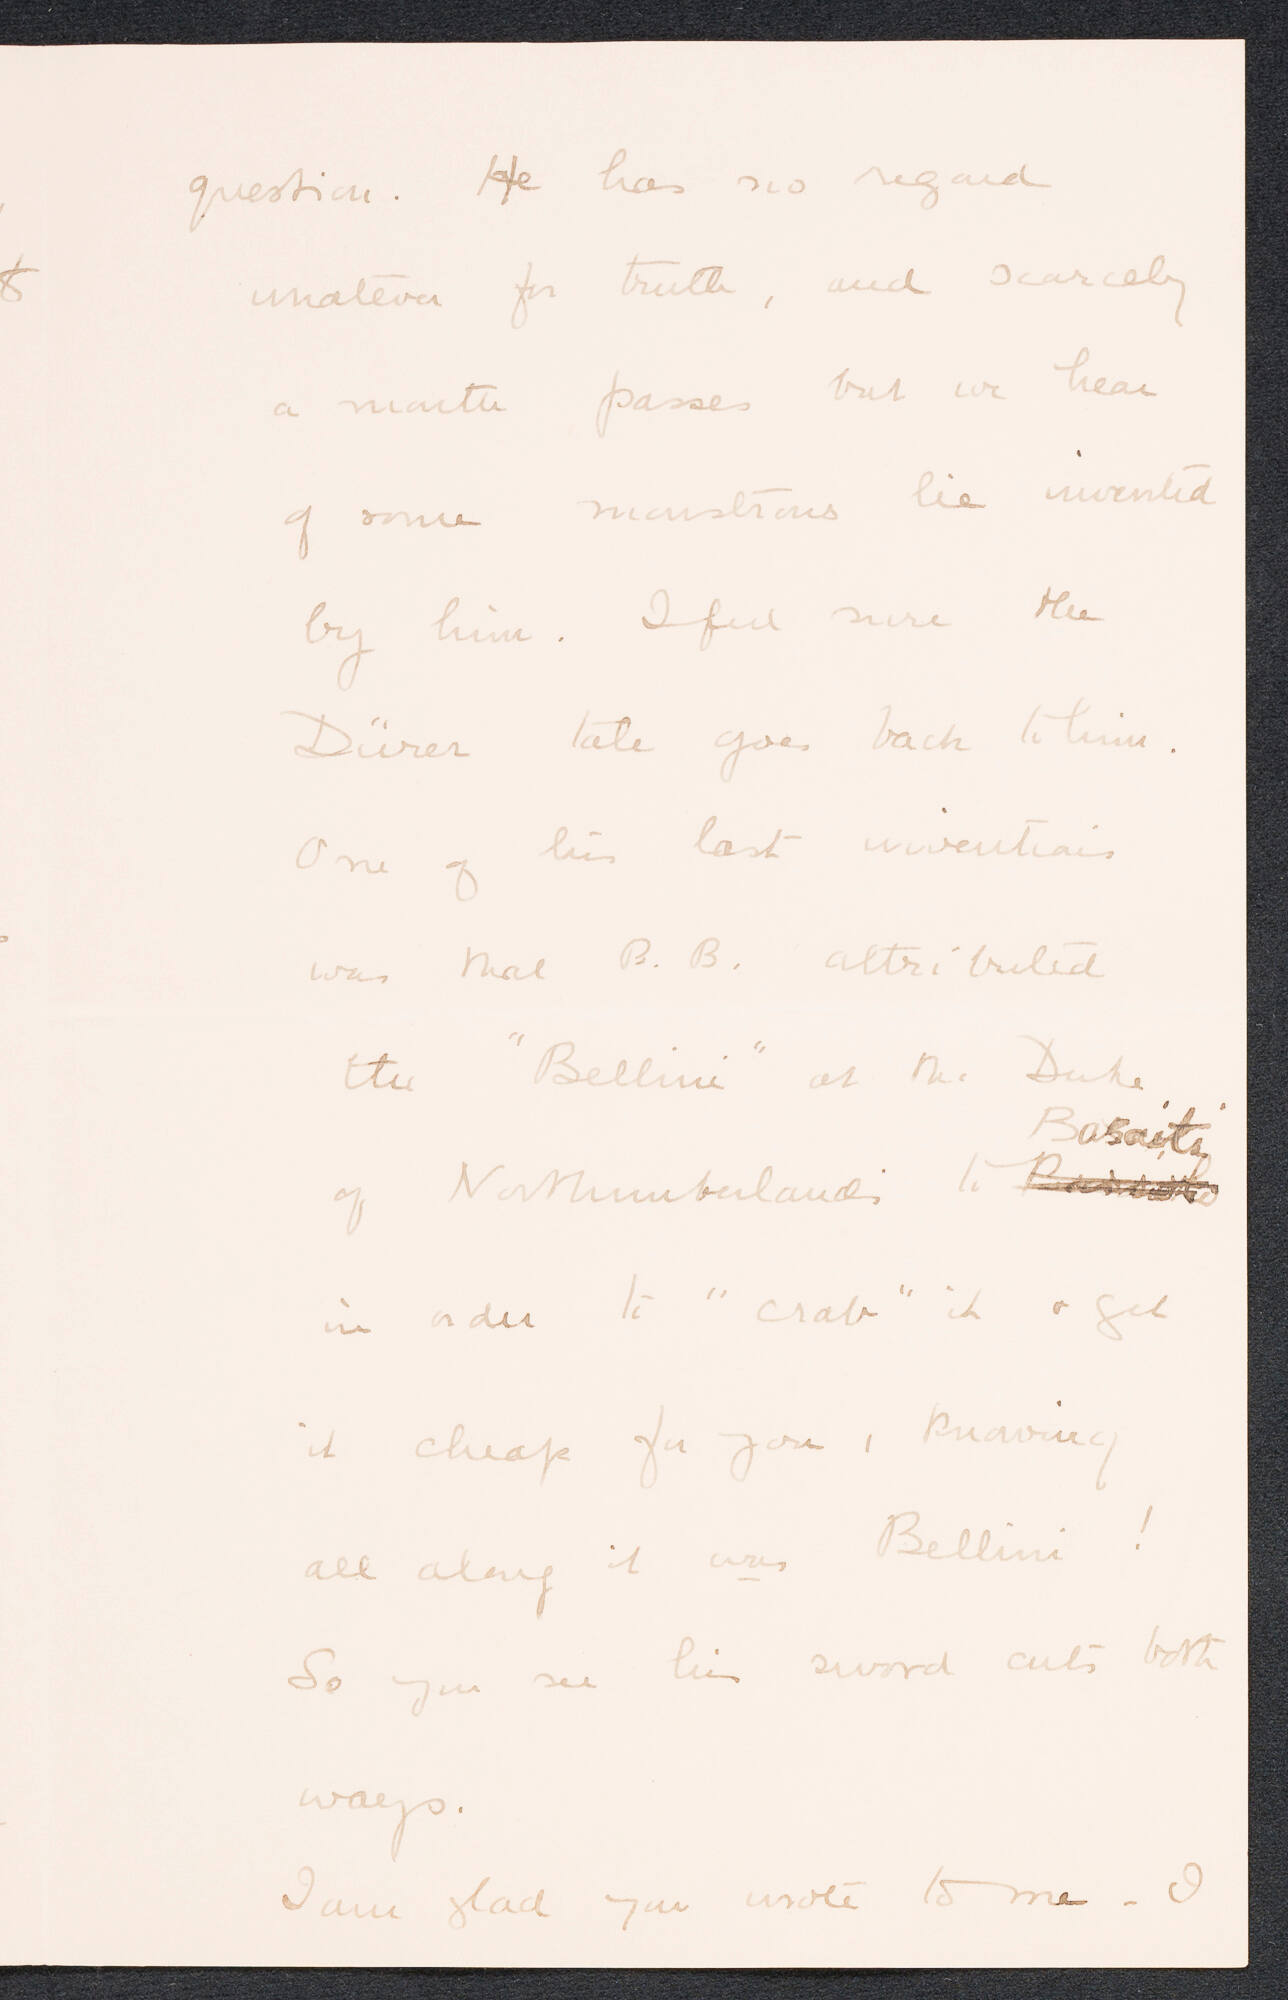 question. He has no regard
whatever for truth, and scarcely
a month passes but we hear
of some monstrous lie invented
by him. I feel sure the
Dürer tale goes back to him.
One of his last inventions
was that B.B. attributed
the "Bellini" at the Duke
Basaiti
of Northumberland's to
in order to "crab" it & get
it cheap for you, knowing
all along it was Bellini!
So you see his sword cuts both
ways.
I am glad you wrote to me - I